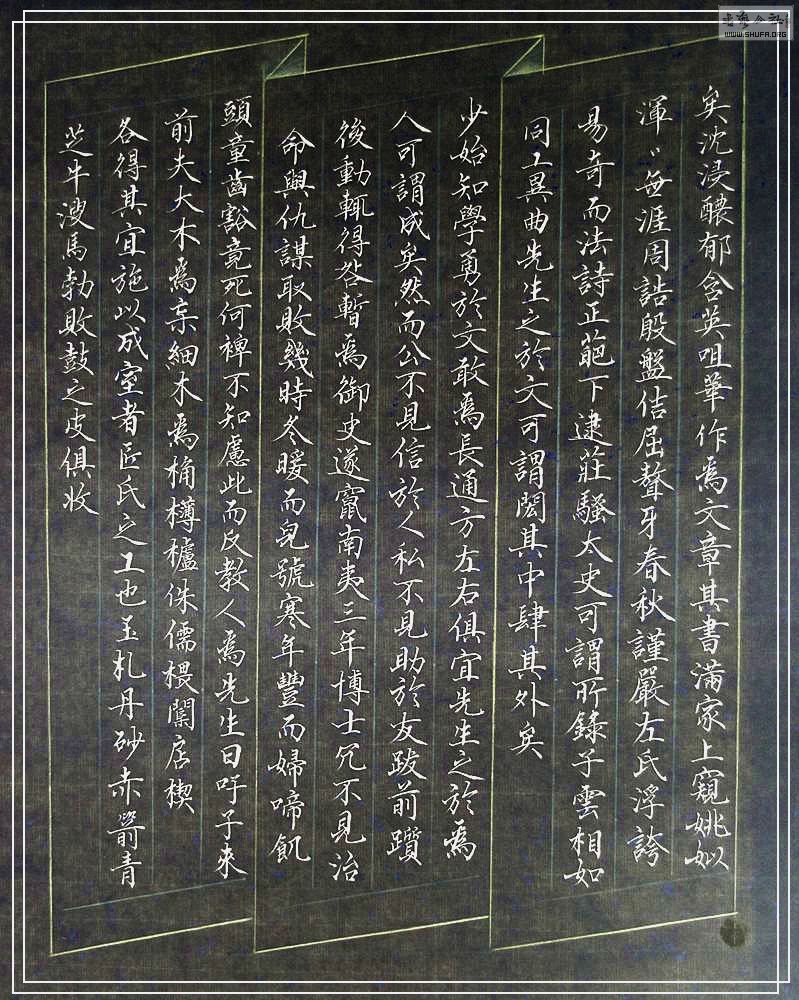 矣沈浸醲郁含英咀華作為文章其書滿家上窺姚姒
渾〻無涯周誥殷盤佶屈聱牙春秋謹嚴左氏浮誇
易奇而法詩正葩下逮莊騷太史可謂所錄子雲相如
同工異曲先生之於文可謂閎其中肆其外矣
少始知學勇於文敢為長通方左右俱宜先生之於為
人可謂成矣然而公不見信於人私不見助於友跋前躓
後動輒得咎暫為御史遂竄南夷三年博士冗不見治
命與仇謀取敗幾時冬暖而兒號寒年豐而婦啼飢
頭童齒豁竟死何裨不知慮此而反教人為先生曰吁子來
前夫大木為杗細木為桷欂櫨侏儒椳闑扂楔
各得其宜施以成室者匠氏之工也玉札丹砂赤箭青
芝牛溲馬勃敗鼓之皮俱收
WWW.SHUFA.ORG